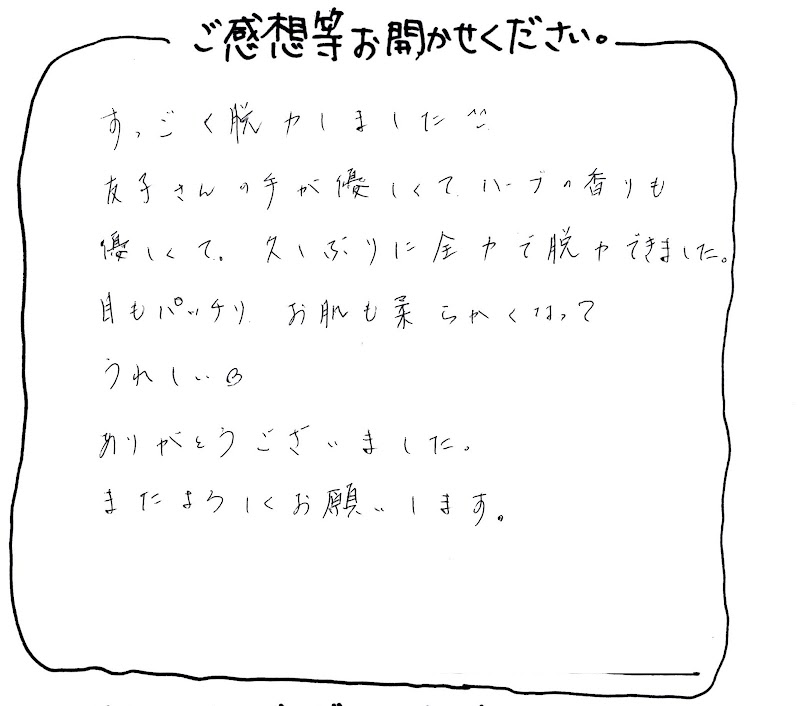 ご感想等お聞かせください。
すっごく脱力しました^^
友子さんの手が優しくて ハーブの香りも
優しくて。久しぶりに全力で脱力できました。
目もパッチリ お肌も柔らかくなって
うれしい
ありがとうございました。
またよろしくお願いします。